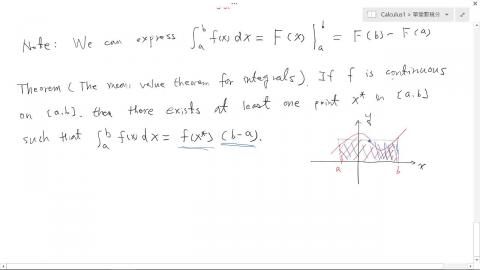 Calculus1 > 單變數積分
Note: We can express ∫_a^b f(x) dx = F(x) |_a^b = F(b) - F(a)
Theorem (The mean value theorem for integrals). If f is continuous
on [a,b], then there exists at least one point x* in [a,b]
such that ∫_a^b f(x) dx = f(x*) (b-a).
y
a
b
x